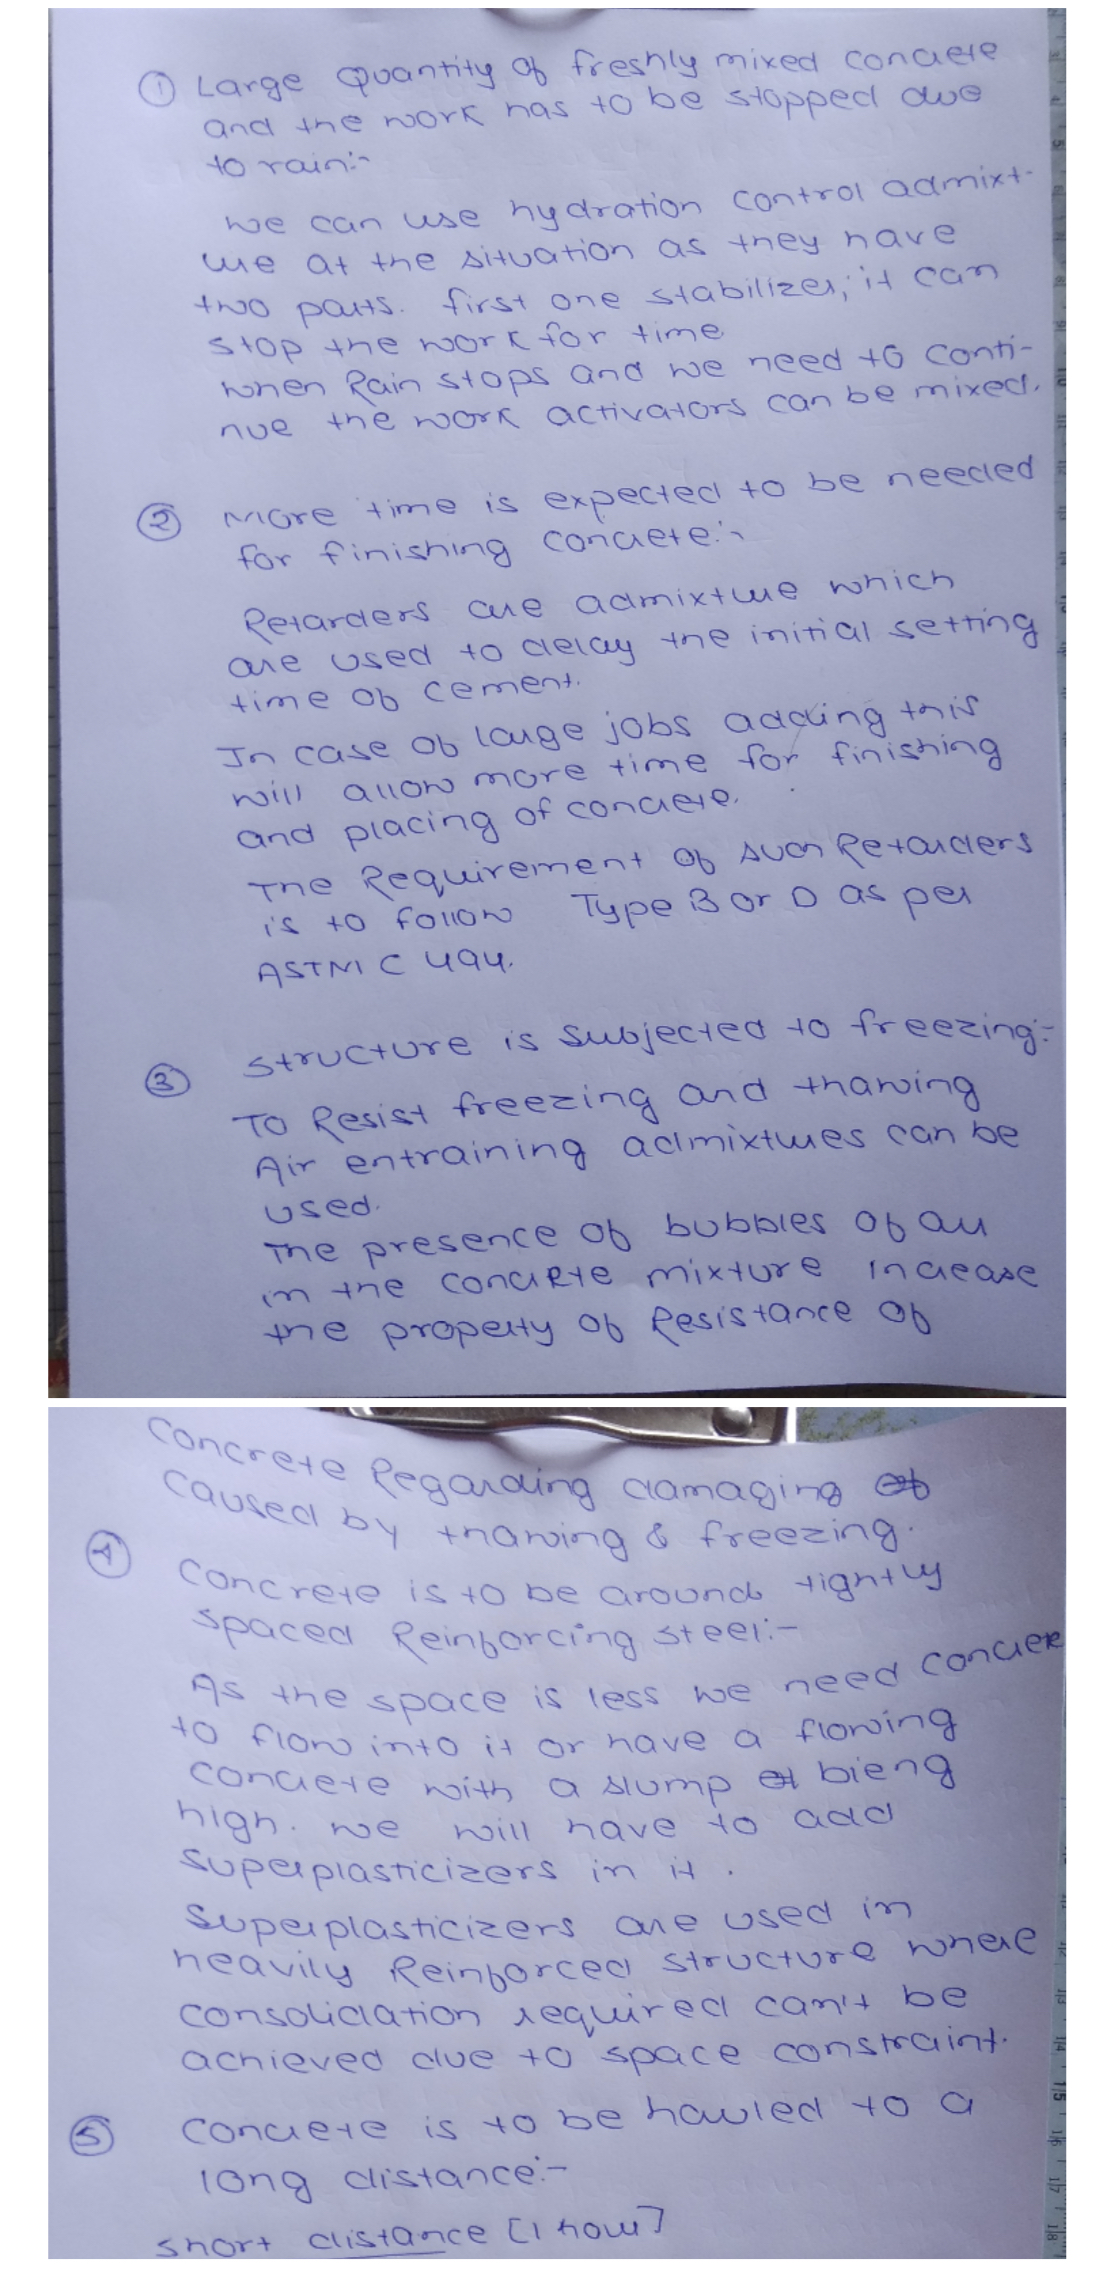 ① Large Quantity of freshly mixed concrete
and the work has to be stopped due
to rain:-
we can use hydration control admixt-
ure at the situation as they have
two parts. first one stabilizer; it can
stop the work for time
when Rain stops and we need to conti-
nue the work activators can be mixed.
② More time is expected to be needed
for finishing concrete:-
Retarders are admixture which
are used to delay the initial setting
time of cement.
In case of large jobs adding this
will allow more time for finishing
and placing of concrete.
The Requirement of such Retarders
is to follow Type B or D as per
ASTM C 494.
③ structure is subjected to freezing:-
To Resist freezing and thawing
Air entraining admixtures can be
used.
The presence of bubbles of air
in the concrete mixture increase
the property of Resistance of
Concrete Regarding damaging of
caused by thawing & freezing.
④ Concrete is to be around tightly
spaced Reinforcing steel:-
As the space is less we need concrete
to flow into it or have a flowing
concrete with a slump bieng
high. we will have to add
superplasticizers in it.
Superplasticizers are used in
heavily Reinforced structure where
consolidation required can't be
achieved due to space constraint.
⑤ Concrete is to be hauled to a
long distance:-
short distance [1 hour]